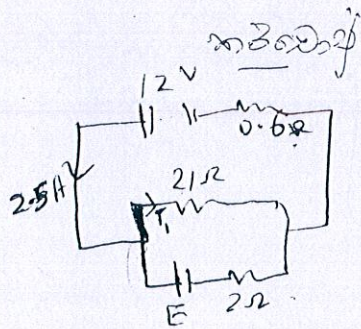 12 V
0.6Ω
2.5A
21Ω
I₁
E
2Ω